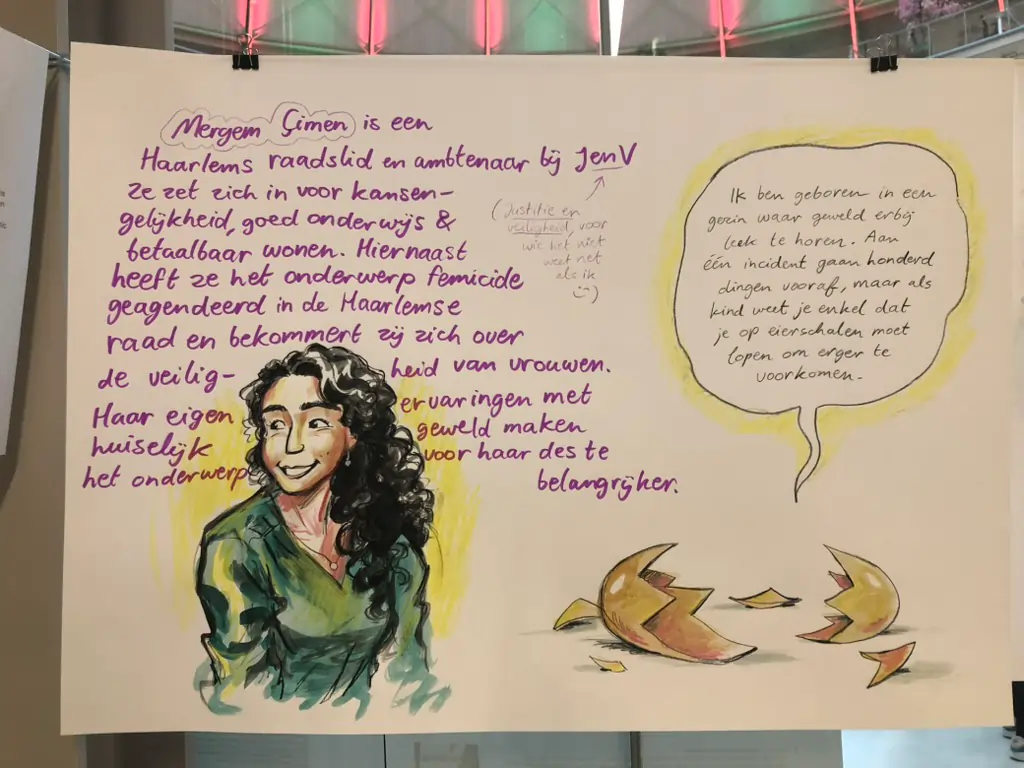 Mergem Çimen is een
Haarlems raadslid en ambtenaar bij JenV
Ze zet zich in voor kansen-
gelijkheid, goed onderwijs &
betaalbaar wonen. Hiernaast
heeft ze het onderwerp femicide
geagendeerd in de Haarlemse
raad en bekommert zij zich over
de veilig- heid van vrouwen.
Haar eigen ervaringen met
huiselijk geweld maken
het onderwerp voor haar des te
belangrijker.
(Justitie en
veiligheid, voor
wie het niet
weet net
als ik
:))
Ik ben geboren in een
gezin waar geweld erbij
leek te horen. Aan
één incident gaan honderd
dingen vooraf, maar als
kind weet je enkel dat
je op eierschalen moet
lopen om erger te
voorkomen.